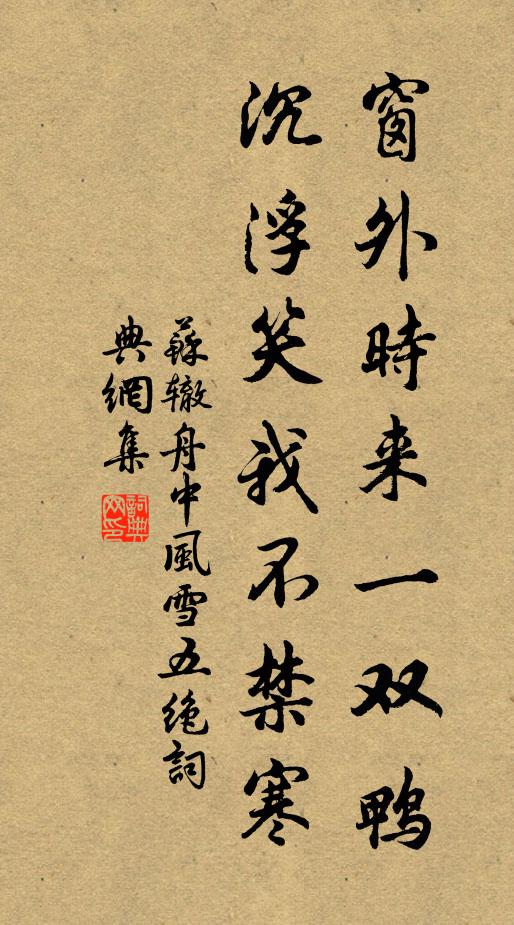 窗外時来一双鴨
沉浮笑我不禁寒
蘇辙舟中風雪五絶詞
典網集
詞典网印